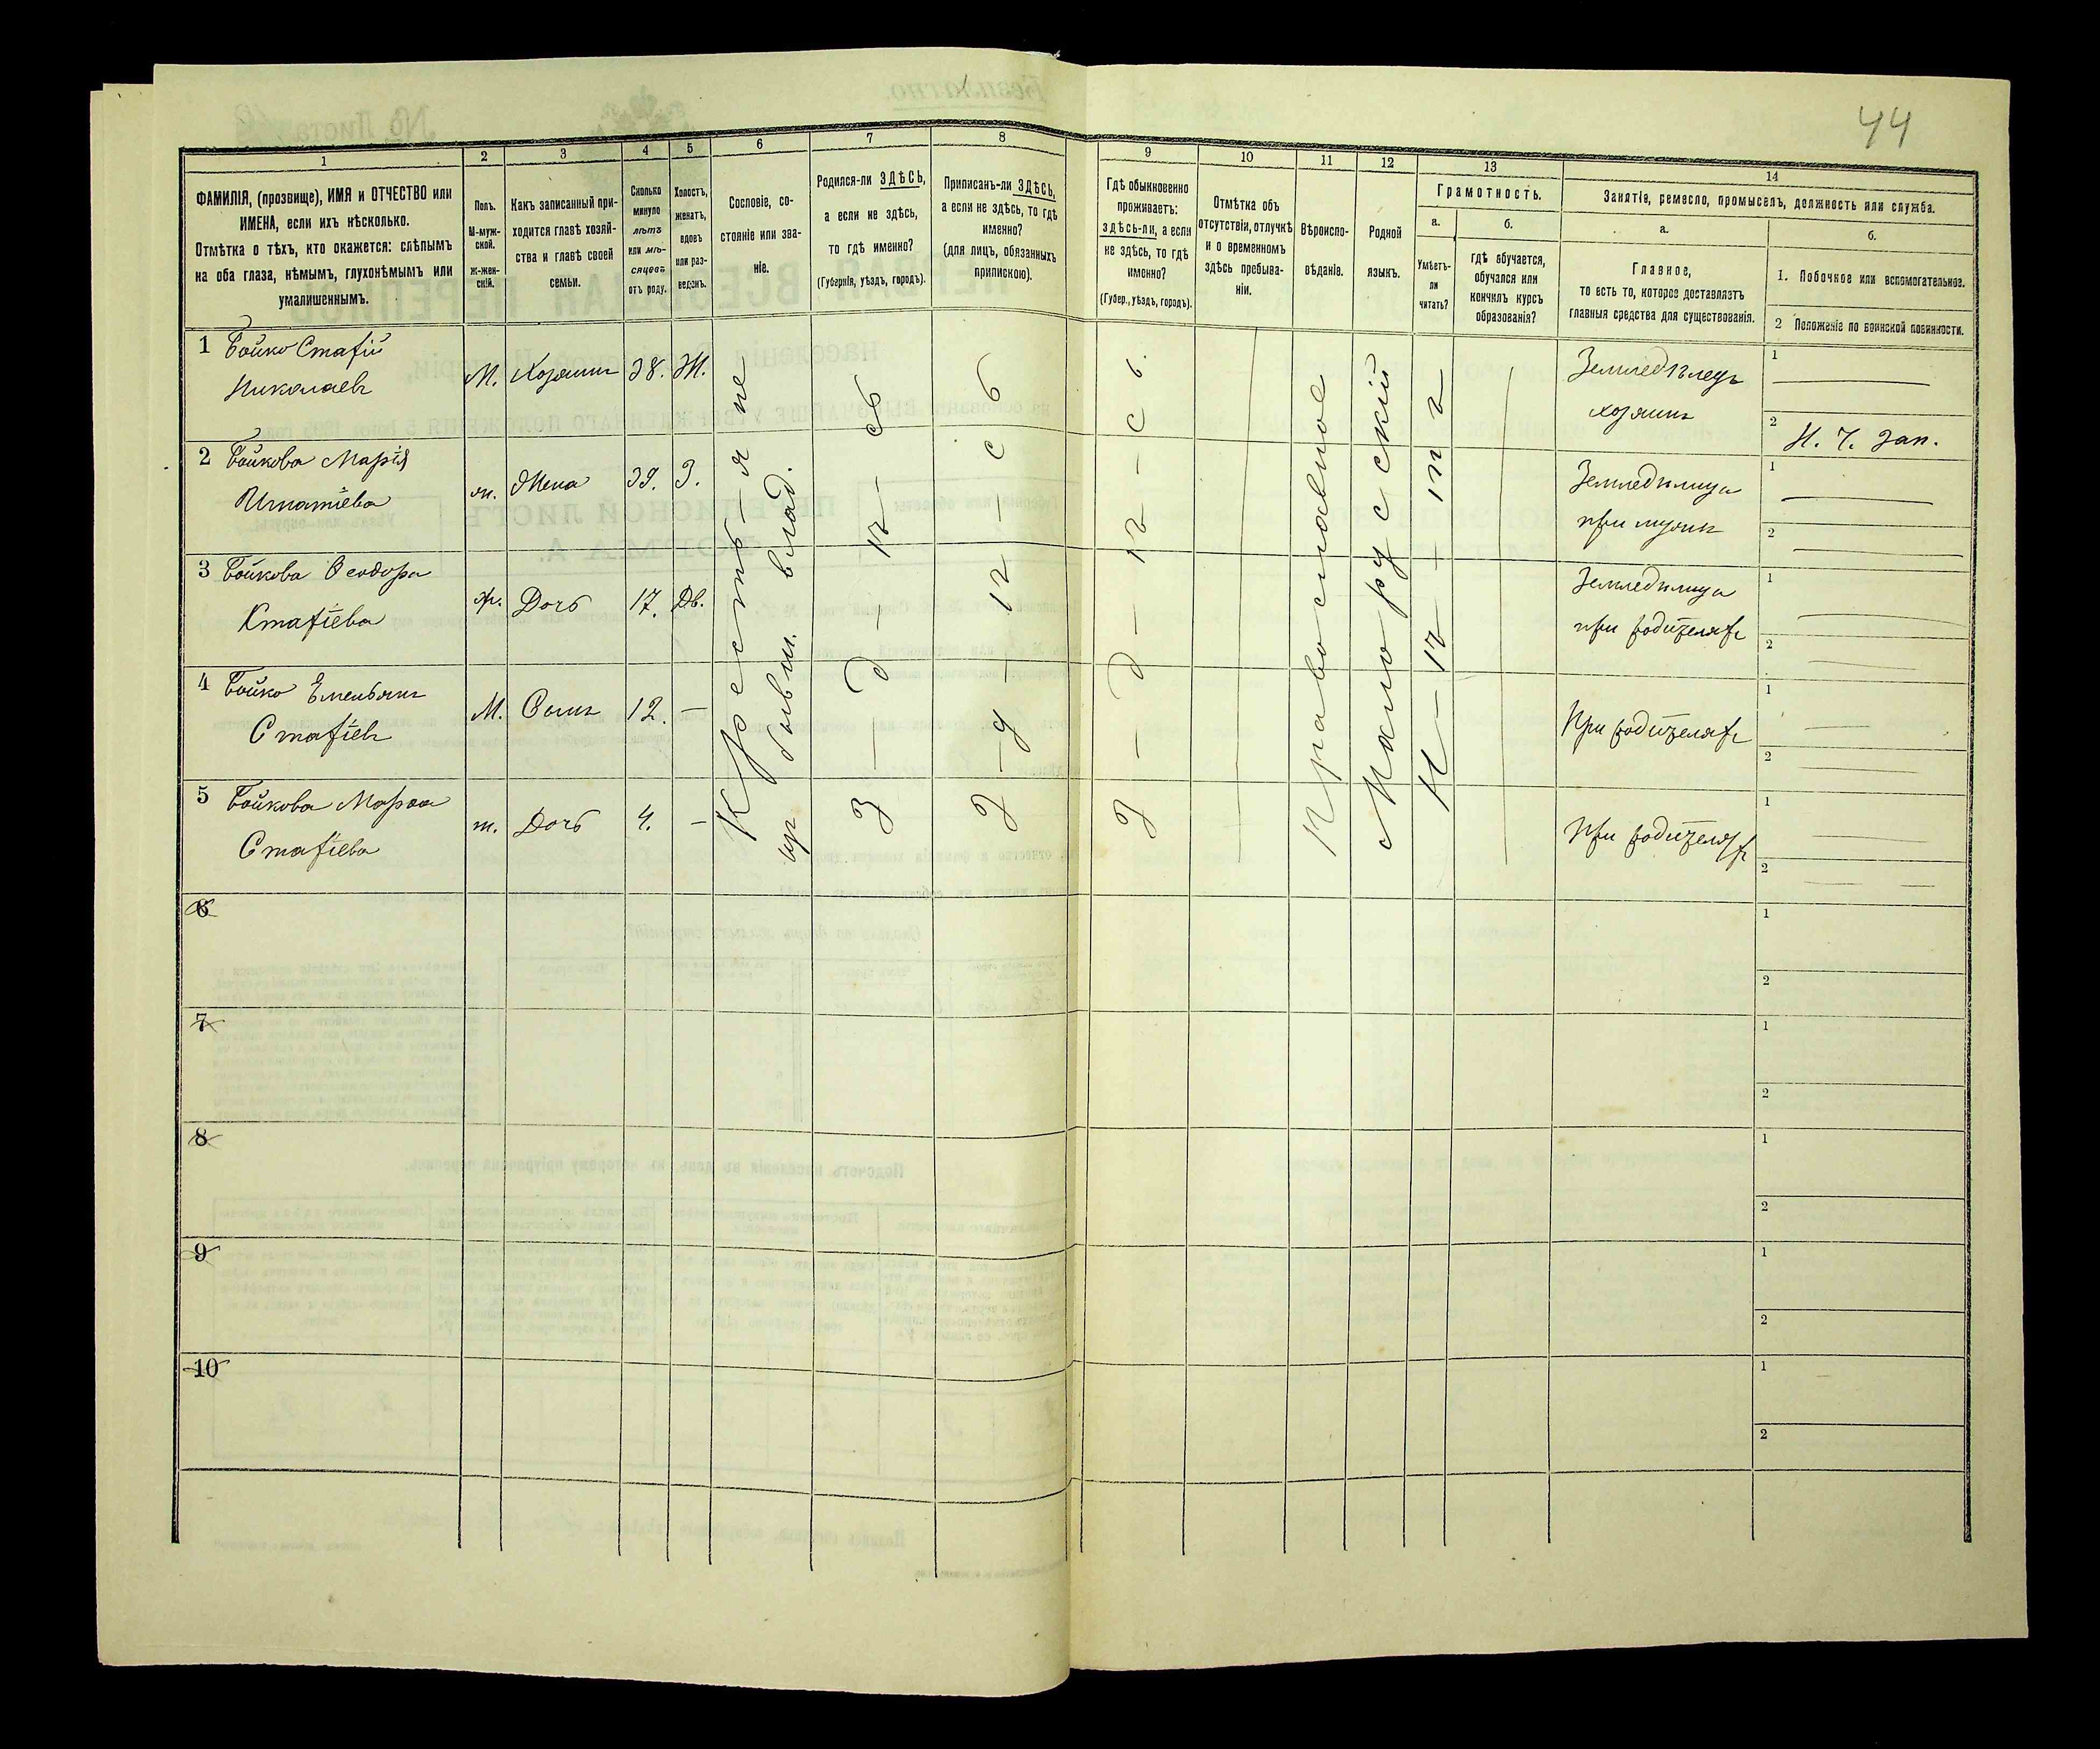 44
1
2
3
4
5
6
7
8
9
10
11
12
13
14
ФАМИЛІЯ, (прозвище), ИМЯ и ОТЧЕСТВО или
ИМЕНА, если ихъ нѣсколько.
Отмѣтка о тѣхъ, кто окажется: слѣпымъ
на оба глаза, нѣмымъ, глухонѣмымъ или
умалишеннымъ.
Полъ.
М-муж-
ской.
Ж-жен-
скій.
Какъ записанный при-
ходится главѣ хозяй-
ства и главѣ своей
семьи.
Сколько
минуло
лѣтъ
или мѣ-
сяцевъ
отъ роду.
Холостъ,
женатъ,
вдовъ
или раз-
веденъ.
Сословіе, со-
стояніе или зва-
ніе.
Родился-ли ЗДѢСЬ,
а если не здѣсь,
то гдѣ именно?
(Губернія, уѣздъ, городъ).
Приписанъ-ли ЗДѢСЬ,
а если не здѣсь, то гдѣ
именно?
(для лицъ, обязанныхъ
припискою).
Гдѣ обыкновенно
проживаетъ:
здѣсь-ли, а если
не здѣсь, то гдѣ
именно?
(Губер., уѣздъ, городъ).
Отмѣтка объ
отсутствіи, отлучкѣ
и о временномъ
здѣсь пребыва-
ніи.
Вѣроиспо-
вѣданіе.
Родной
языкъ.
Грамотность.
а.
Умѣетъ-
ли
читать?
б.
гдѣ обучается,
обучался или
кончилъ курсъ
образованія?
Занятіе, ремесло, промыселъ, должность или служба.
а.
Главное,
то есть то, которое доставляетъ
главныя средства для существованія.
б.
1. Побочное или вспомогательное.
2 Положеніе по воинской повинности.
1 Бойко Стафій
Николаевъ
М. Хозяинъ 38. Ж.
Земледѣлецъ
хозяинъ
1
2 Н. Ч. зап.
2 Бойкова Марія
Игнатіева
ж. Жена 39. З.
Земледѣлица
при мужѣ
1
2
3 Бойкова Ѳеодора
Стафіева
ж. Дочь 17. Дв.
Земледѣлица
при родителяхъ
1
2
4 Бойко Емельянъ
Стафіевъ
М. Сынъ 12. —
При родителяхъ
1
2
5 Бойкова Марѳа
Стафіева
ж. Дочь 4. —
При родителяхъ
1
2
Крестья не
изъ бывш. влад.
З — д — ѣ — сь
З — д — ѣ — с ь
З — д — ѣ — сь
Православное
Малорусскій
Н — ѣ — т ъ
6
1
2
7
1
2
8
1
2
9
1
2
10
1
2